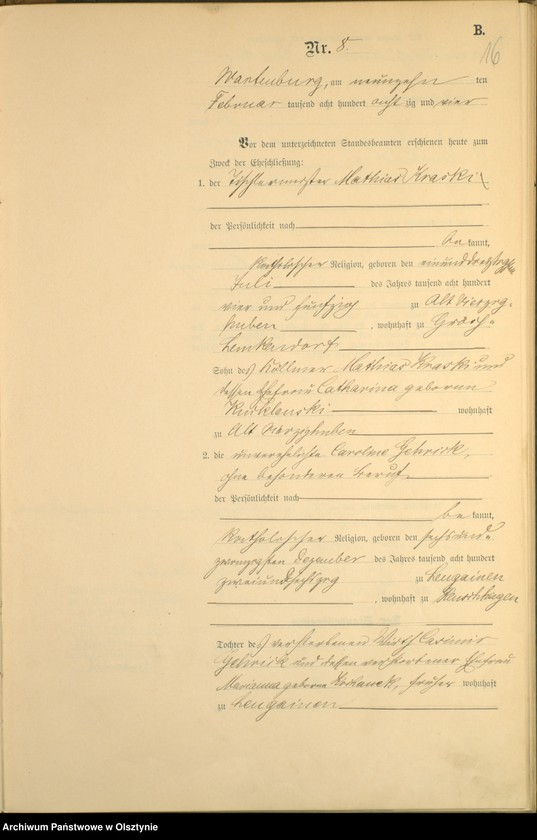 B.
16
Nr. 8
Wartenburg, am neunzehn ten
Februar tausend acht hundert acht zig und vier
Vor dem unterzeichneten Standesbeamten erschienen heute zum
Zweck der Eheschließung:
1. der Tischlermeister Mathias Kraski
der Persönlichkeit nach
be kannt,
katholischer Religion, geboren den einunddreißigsten
Juli des Jahres tausend acht hundert
vier und fünfzig zu Alt Vierzig-
huben, wohnhaft zu Groß-
Lemkendorf
Sohn des Köllmer Mathias Kraski und
dessen Ehefrau Catharina geborenen
wohnhaft
zu Alt Vierzighuben
2. die unverehelichte Caroline Gehrick,
ohne besonderen Beruf
der Persönlichkeit nach
be kannt,
katholischer Religion, geboren den sechsund-
zwanzigsten Dezember des Jahres tausend acht hundert
zweiundsechszig zu Lengainen
, wohnhaft zu
Tochter des verstorbenen Wirth Casimir
Gehrick und dessen verstorbener Ehefrau
Marianna geborne früher wohnhaft
zu Lengainen
Archiwum Państwowe w Olsztynie